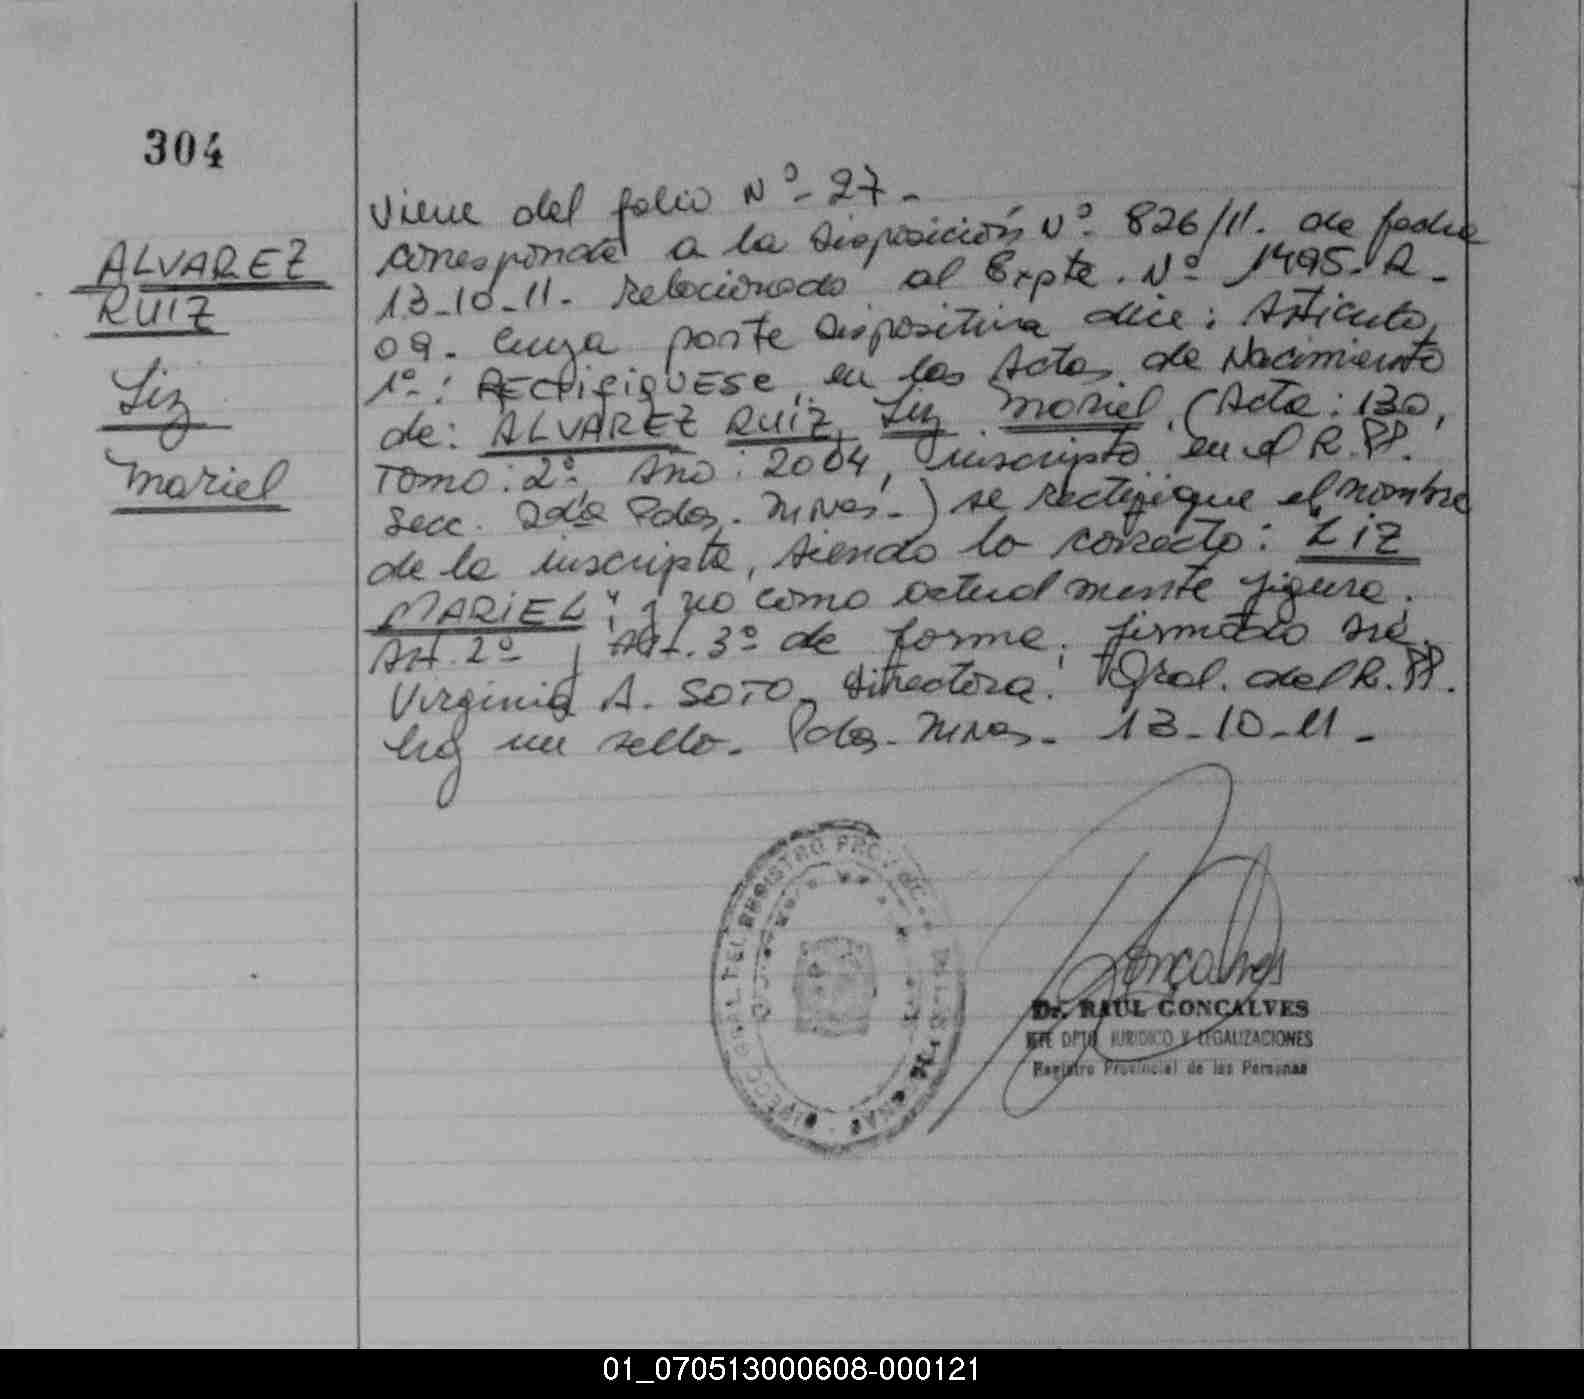 304
ALVAREZ
RUIZ
Liz
Mariel
Viene del folio Nº- 27-
corresponde a la Disposición Nº 826/11. de fecha
13-10-11- relacionado al Expte. Nº 1495-R-
09- Cuya parte dispositiva dice: Articulo,
1º: RECTIFIQUESE, en las Actas de Nacimiento
de: ALVAREZ RUIZ, Liz Mariel, (Acta: 130,
Tomo: 2º, Año: 2004, inscripta en el R.PP.
Secc. 2da Pdas. Mnes.-) se rectifique el nombre
de la inscripta, siendo lo correcto: "LIZ
MARIEL"; y no como actualmente figura.
Art. 2º y Art. 3º de forme. firmado
Virginia A. SOTO- Directora. Gral. del R.PP.
hay un sello- Pdas- Mnes- 13-10-11-
REGISTRO PROV.
Goncalves
Dr. RAUL GONCALVES
JEFE DPTO JURIDICO Y LEGALIZACIONES
Registro Provincial de las Personas
01_070513000608-000121